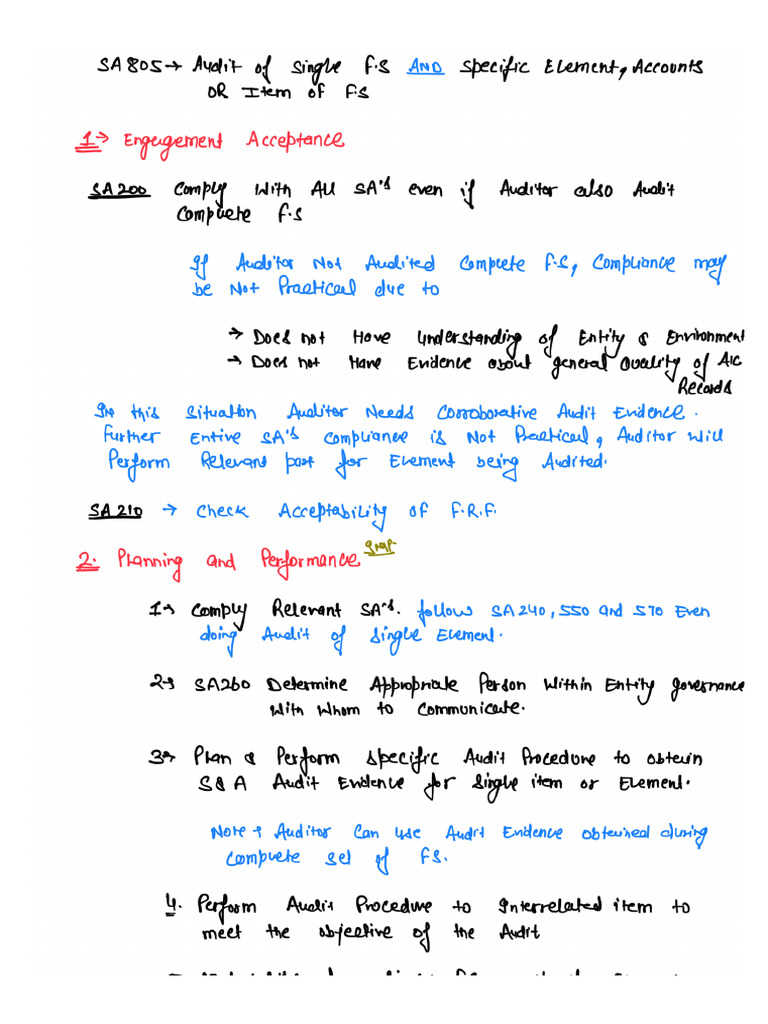 SA805→ Audit of Single F.S AND Specific Element, Accounts
OR Item of F.S
1→ Engegement Acceptance
SA200 Comply With All SA's even if Auditor also Audit
Complete F.S
If Auditor Not Audited Complete F.S, Compliance may
be Not Practical due to
→ Does not Have Understanding of Entity & Environment
→ Does not Have Evidence about general Quality of A/C
Records
In this Situation Auditor Needs Corroborative Audit Evidence.
Further Entire SA's Compliance is Not Practical, Auditor Will
Perform Relevant part for Element being Audited.
SA210 → Check Acceptability of F.R.F.
2. Planning and Performance
1→ Comply Relevant SA's. Follow SA240, 550 and 570 Even
doing Audit of Single Element.
2→ SA260 Determine Appropriate Person Within Entity governance
With Whom to Communicate.
3→ Plan & Perform Specific Audit Procedure to obtain
S&A Audit Evidence for Single item or Element.
Note → Auditor Can Use Audit Evidence obtained during
Complete set of FS.
4. Perform Audit Procedure to Interrelated item to
meet the objective of the Audit